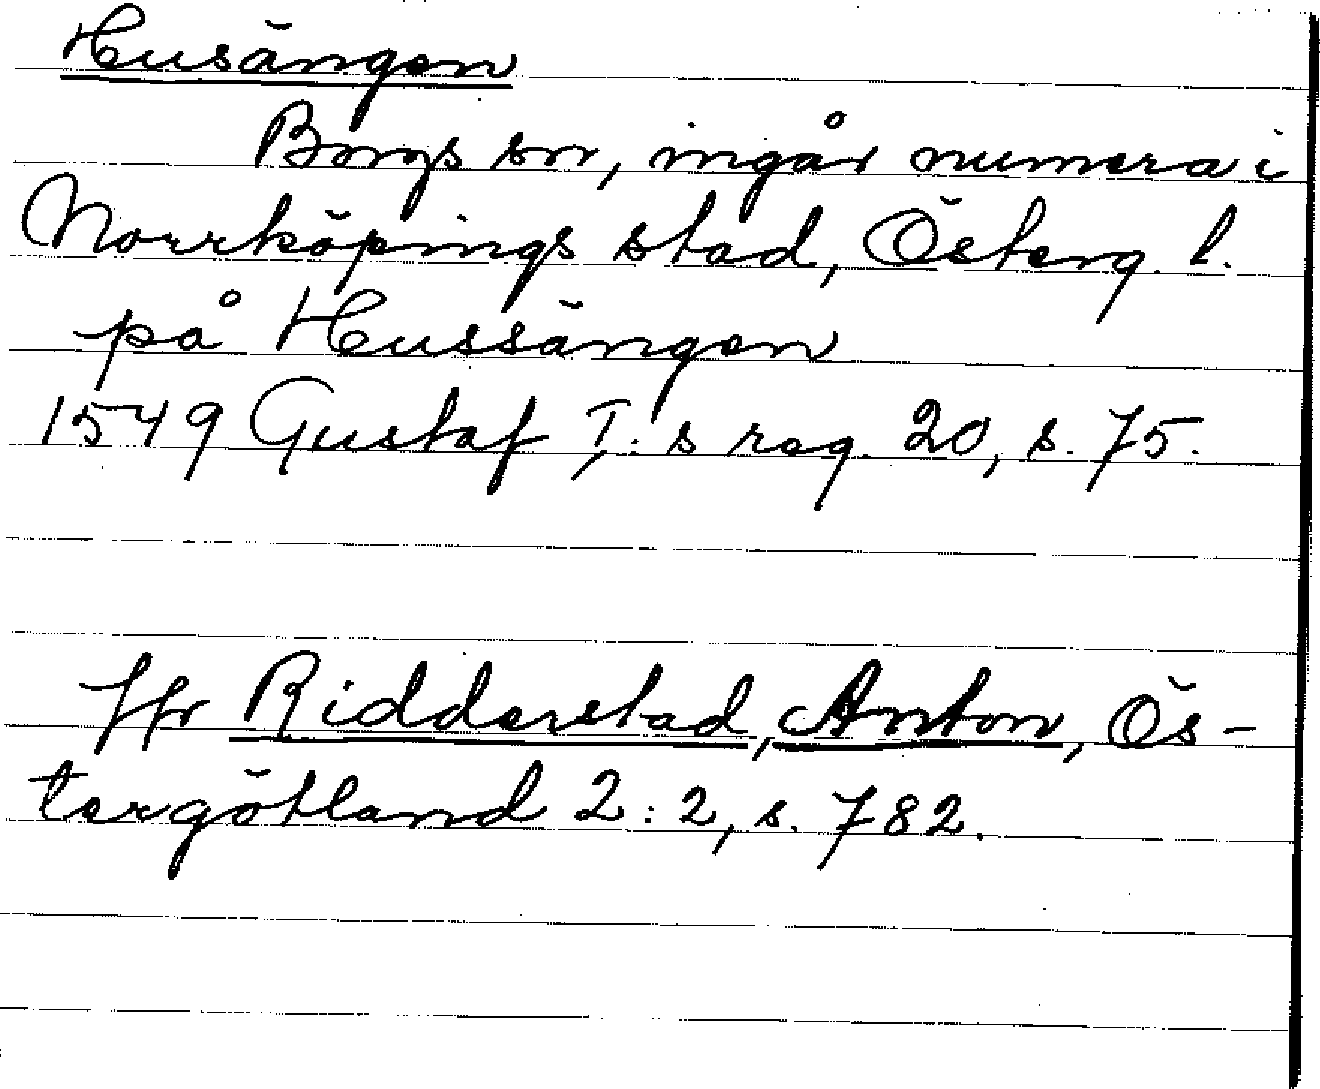 Husängen
Borgs sn, ingår numera i
Norrköpings stad, Österg. l.
på Hussängen
1549 Gustaf I:s reg. 20, s. 75.
Jfr Ridderstad, Anton, Ös-
tergötland 2:2, s. 782.